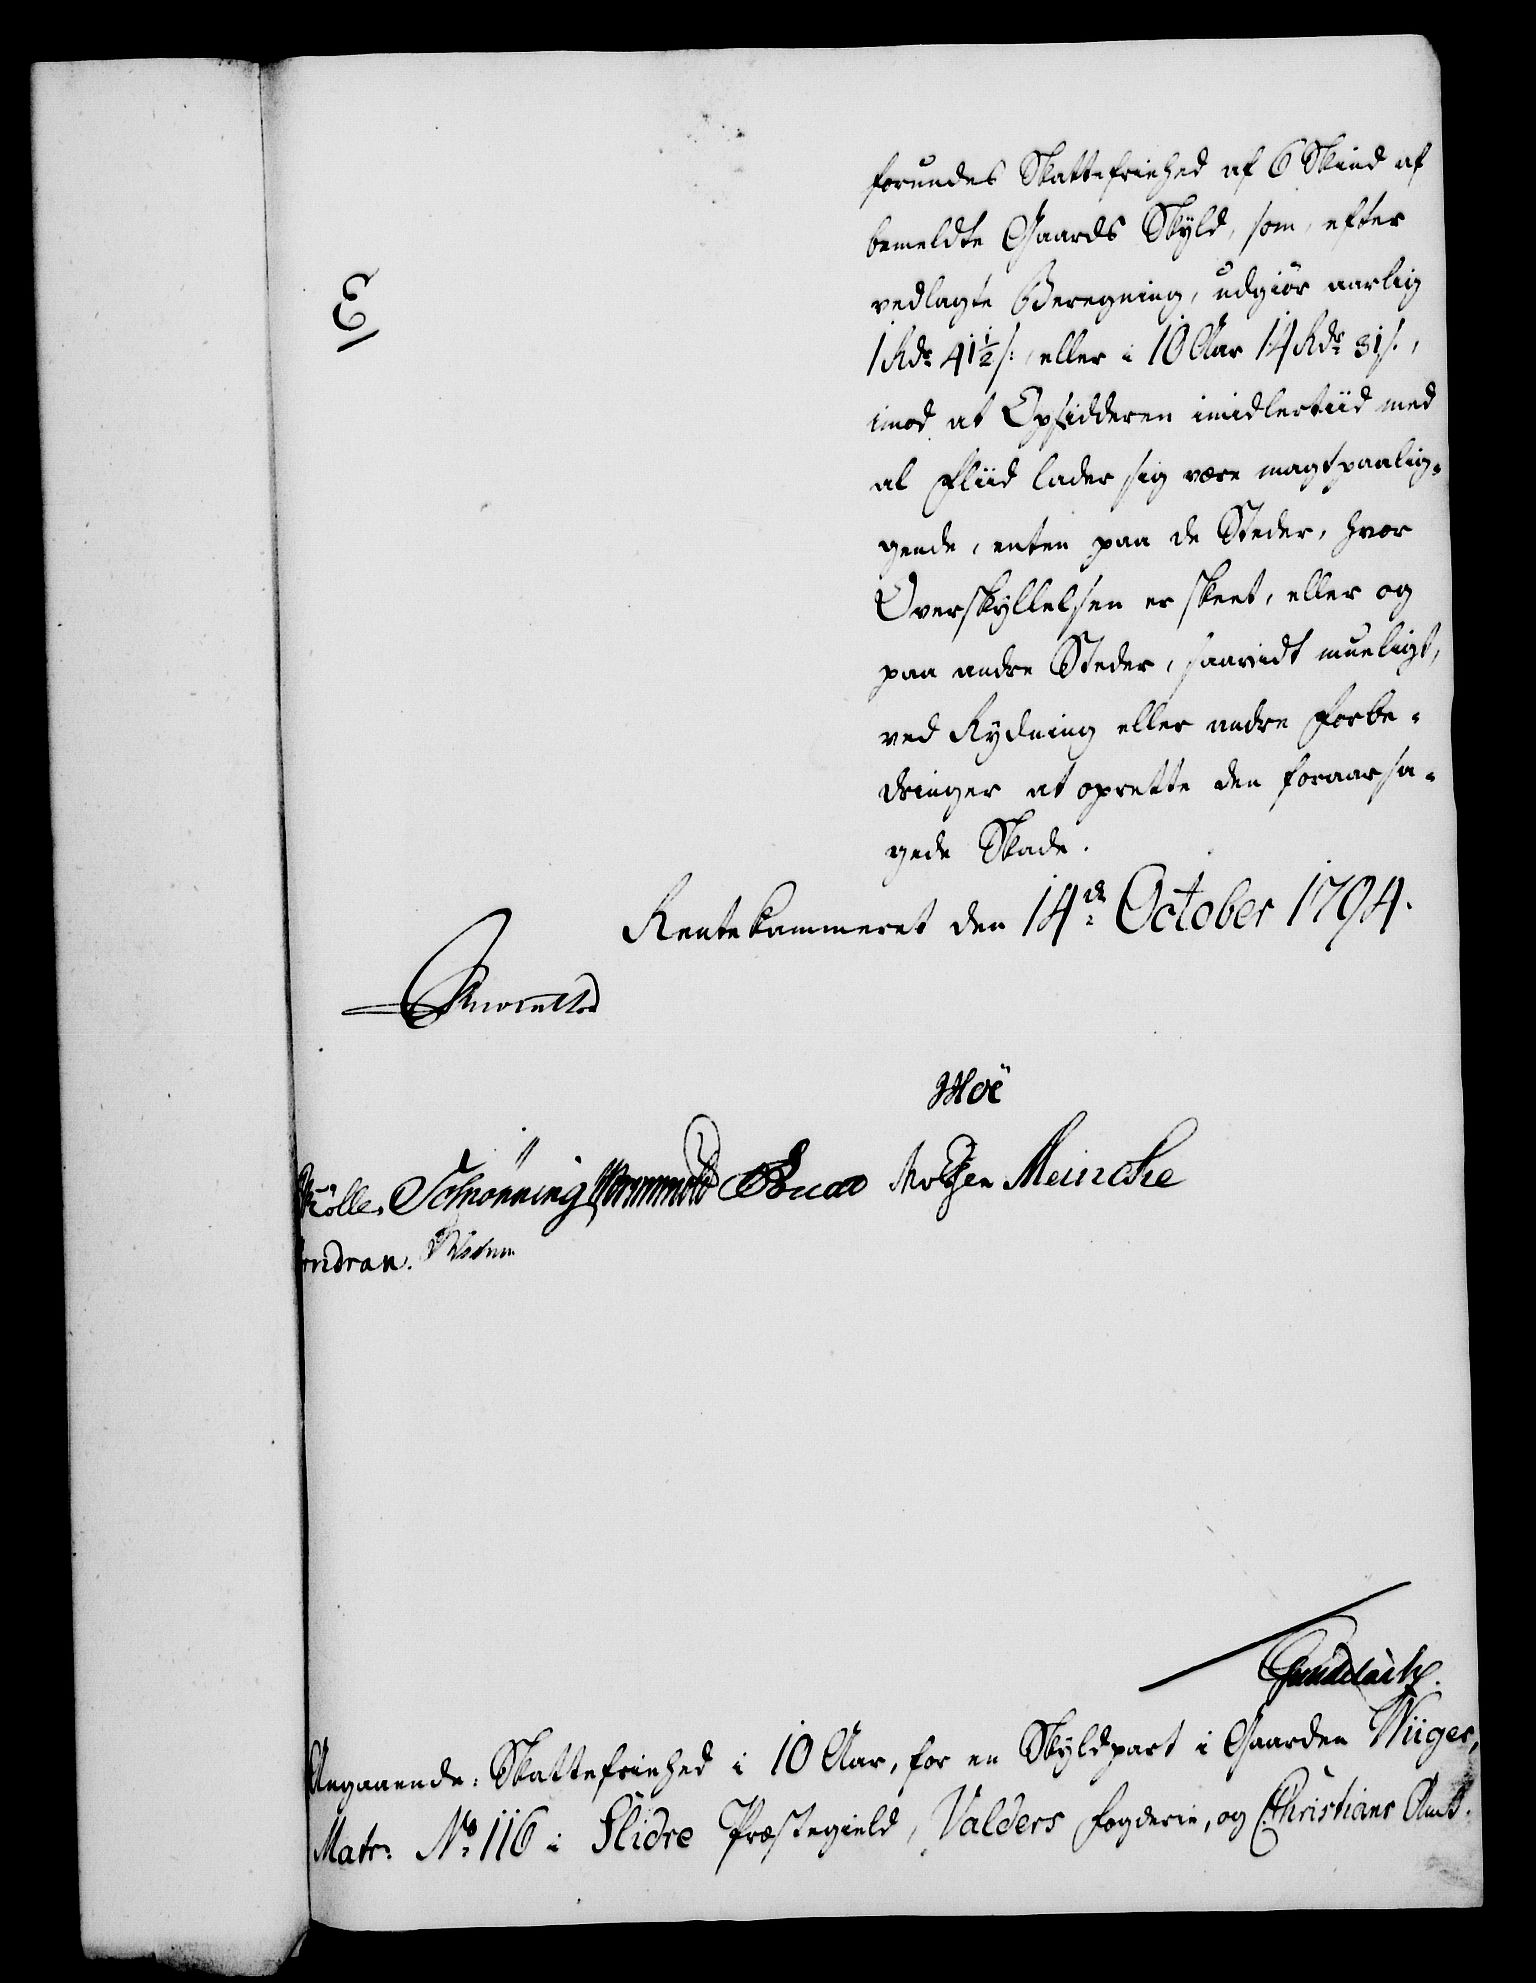 forundes Skattefriehed af 6 Skind af
bemeldte Gaards Skyld, som, efter
vedlagte Beregning, udgiør aarlig
1 Rdr 41½ s:, eller i 10 Aar 14 Rdr 31 s.,
imod at Opsidderen imidlertiid med
al Fliid lader sig være magtpaalig-
gende, enten paa de Steder, hvor
Overskyllelsen er skeet, eller og
paa andre Steder, saavidt mueligt,
ved Rydning eller andre Forbe-
dringer at oprette den foraarsa-
gede Skade.
Rentekammeret den 14de October 1794.
Moe
Mølle. Schønning Wormskiold Meincke
Gundelach.
Angaaende: Skattefriehed i 10 Aar, for en Skyldpart i Gaarden Wiiger,
Matr: No 116 i Slidre Præstegield, Valders Fogderie, og Christians Amt.